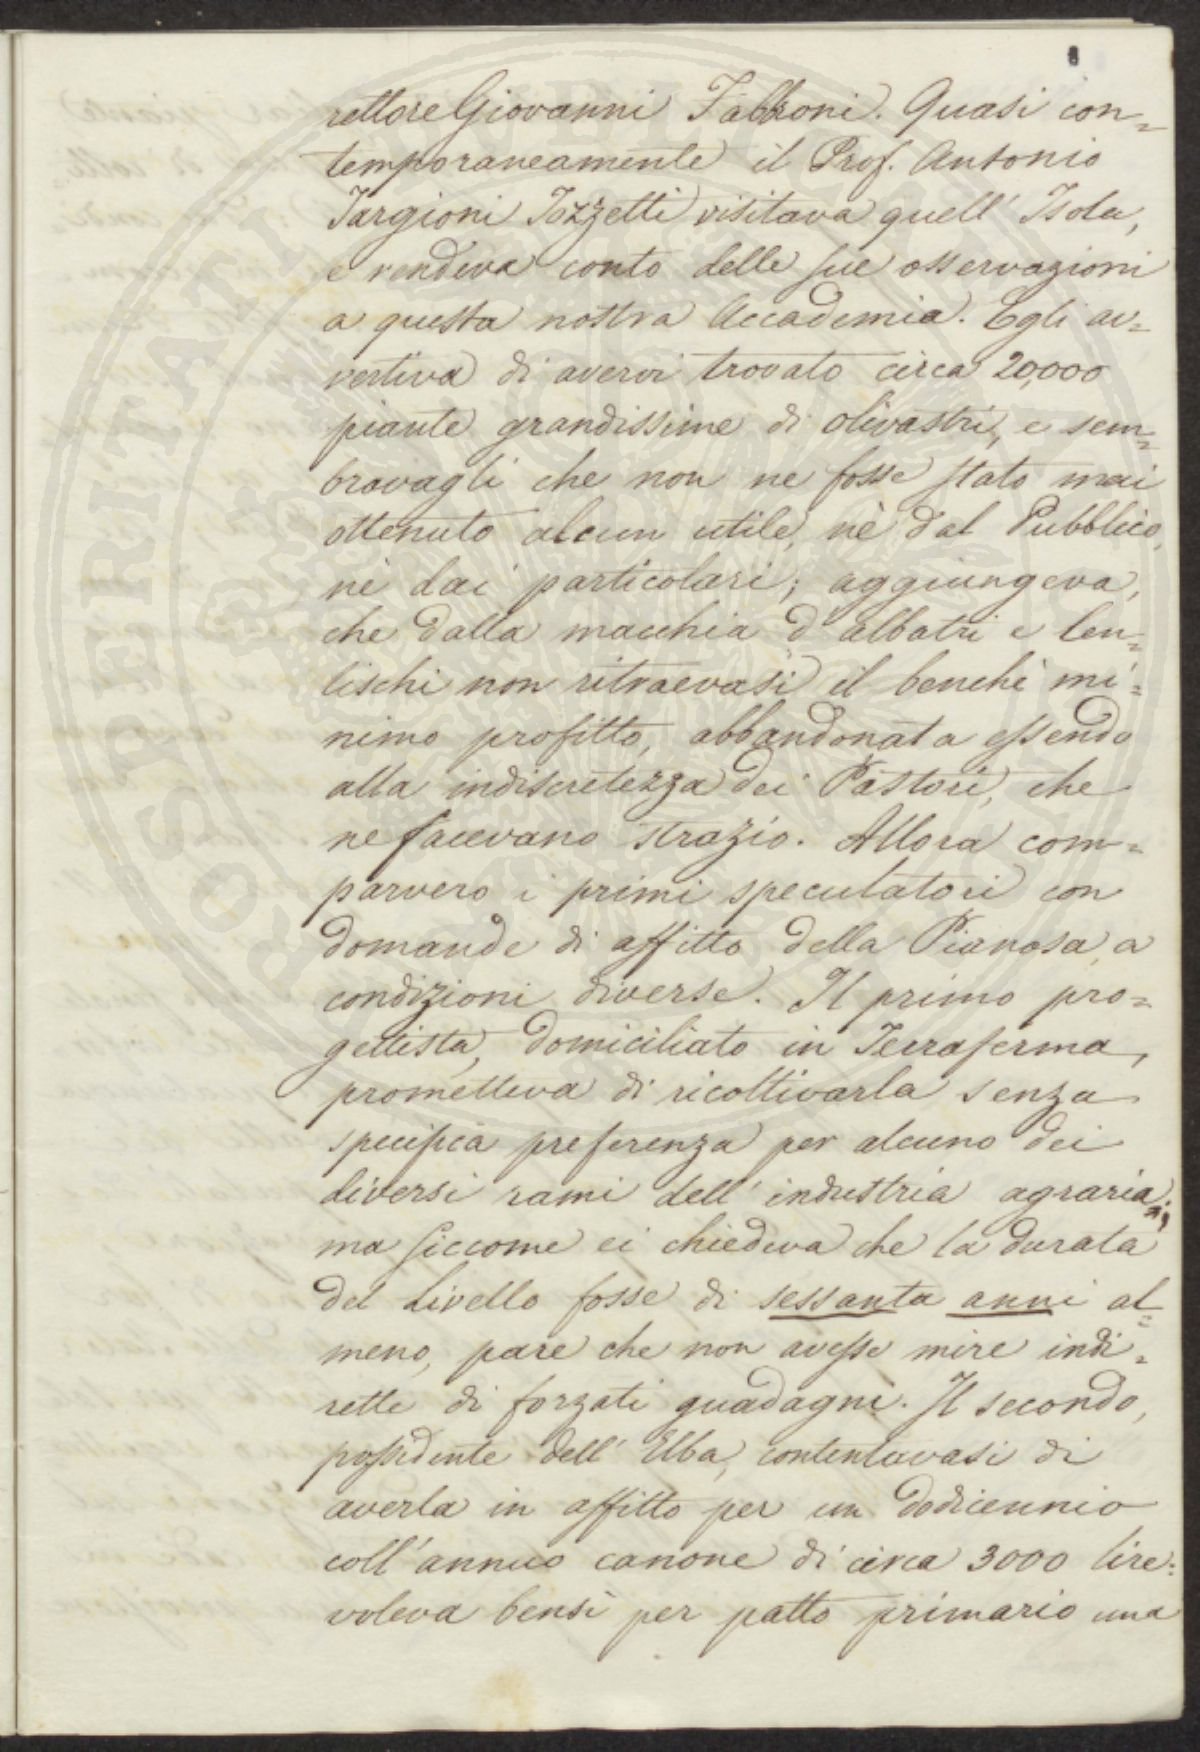 8
rettore Giovanni Fabbroni. Quasi con=
temporaneamente il Prof. Antonio
Targioni Tozzetti visitava quell' Isola,
e rendeva conto delle sue osservazioni
a questa nostra Accademia. Egli av=
vertiva di avervi trovato circa 20,000
piante grandissime di olivastri, e sem=
bravagli che non ne fosse stato mai
ottenuto alcun utile, nè dal Pubblico,
nè dai particolari; aggiungeva,
che dalla macchia d'albatri e len=
tischi non ritraevasi il benchè mi=
nimo profitto, abbandonata essendo
alla indiscretezza dei Pastori, che
ne facevano strazio. Allora com=
parvero i primi speculatori con
domande di affitto della Pianosa, a
condizioni diverse. Il primo pro=
gettista, domiciliato in Terraferma,
prometteva di ricoltivarla senza
specifica preferenza per alcuno dei
diversi rami dell' industria agraria;
ma siccome ei chiedeva che la durata
del Livello fosse di sessanta anni al=
meno, pare che non avesse mire indi=
rette di forzati guadagni. Il secondo,
possidente dell' Elba, contentavasi di
averla in affitto per un dodicennio
coll' annuo canone di circa 3000 lire:
voleva bensì per patto primario una
PROSPERITATI PUBLICAE